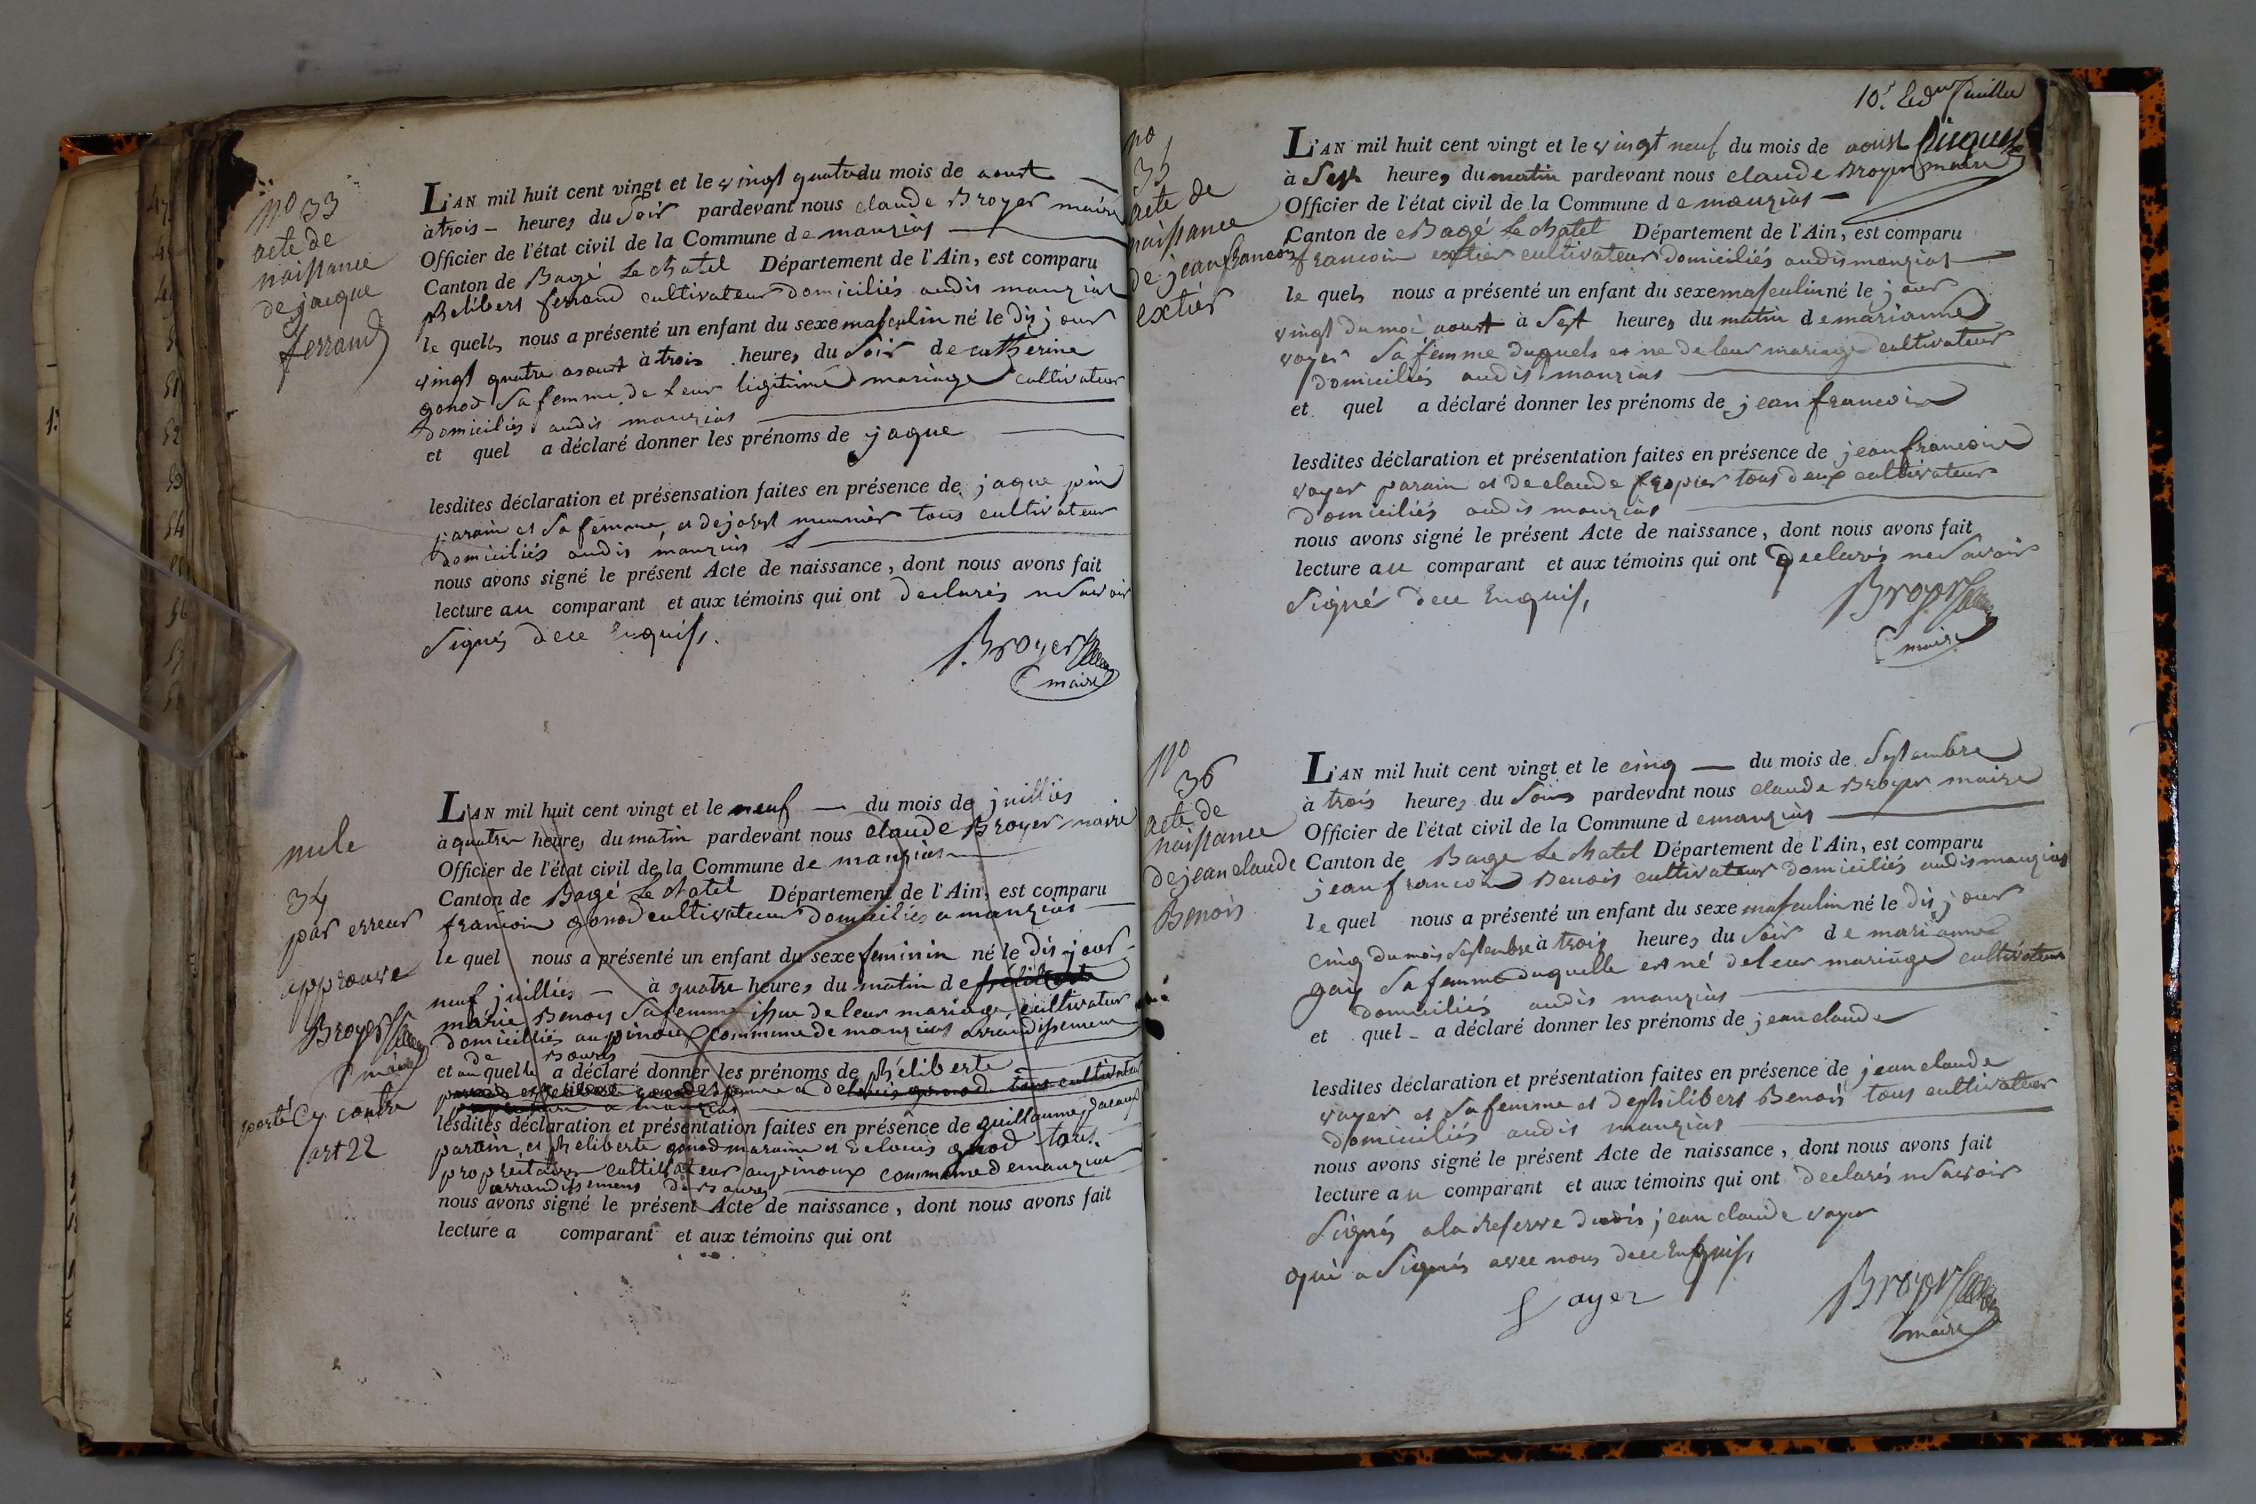 No 33
acte de
naissance
de jacque
ferrand
L'AN mil huit cent vingt et le vingt quatre du mois de aoust
à trois heures du soir pardevant nous claude Broyer maire
Officier de l'état civil de la Commune de manziat
Canton de Bagé Le chatel Département de l'Ain, est comparu
philibert ferrand cultivateur domiciliés audit manziat
le quel nous a présenté un enfant du sexe masculin né le dis jour
vingt quatre aoust à trois heures du soir de catherine
gonod sa femme de leur ligitime mariage cultivateur
domiciliés audis manzias
et quel a déclaré donner les prénoms de jaque
lesdites déclaration et présensation faites en présence de jaque
parain et sa femme et de josept meunier tous cultivateur
domiciliés audis manzias
nous avons signé le présent Acte de naissance, dont nous avons fait
lecture au comparant et aux témoins qui ont declarés ne savoir
signés dece Enquis.
Broyer
maire
nule
34
par erreur
approuve
Broyer
maire
porté Cy contre
art 22
L'AN mil huit cent vingt et le neuf du mois de juilliés
à quatre heures du matin pardevant nous claude Broyer maire
Officier de l'état civil de la Commune de manzias
Canton de Bagé Le chatel Département de l'Ain, est comparu
francois gonod cultivateur domiciliés a manzias
le quel nous a présenté un enfant du sexe feminin né le dis jour
neuf juilliés à quatre heures du matin de
marie Benois sa femme issue de leur mariage cultivateur
domiciliés au pinoux commune de manzias arrondissement
de Bourg
et au quelle a déclaré donner les prénoms de pheliberte
lesdites déclaration et présentation faites en présence de guillaume
parain et pheliberte gonod maraine et de louis gonod tous
propriétaires cultivateur au pinoux commune de manzias
arrondissement de Bourg
nous avons signé le présent Acte de naissance, dont nous avons fait
lecture a comparant et aux témoins qui ont
10.
No
35
acte de
naissance
de jean francois
extier
L'AN mil huit cent vingt et le vingt neuf du mois de aoust
à sept heures du matin pardevant nous claude Broyer maire
Officier de l'état civil de la Commune de manzias
Canton de Bagé Le chatel Département de l'Ain, est comparu
francois extier cultivateur domiciliés audis manzias
le quel nous a présenté un enfant du sexe masculin né le jour
vingt du moi aoust à sept heures du matin de marianne
voyer sa femme duquels es ne de leur mariage cultivateur
domiciliés audis manzias
et quel a déclaré donner les prénoms de jean francois
lesdites déclaration et présentation faites en présence de jean francois
voyer parain et de claude tous deux cultivateur
domiciliés audis manzias
nous avons signé le présent Acte de naissance, dont nous avons fait
lecture au comparant et aux témoins qui ont declarés ne savoir
signé dece Enquis,
Broyer
maire
No
36
acte de
naissance
de jean claude
Benois
L'AN mil huit cent vingt et le cinq du mois de septembre
à trois heures du soir pardevant nous claude Broyer maire
Officier de l'état civil de la Commune de manzias
Canton de Bage Le chatel Département de l'Ain, est comparu
jean francois Benois cultivateur domiciliés audis manzias
le quel nous a présenté un enfant du sexe masculin né le dis jour
cinq du mois septembre à trois heures du soir de marianne
sa femme duquelle est né de leur mariage cultivateur
domiciliés audis manzias
et quel a déclaré donner les prénoms de jean claude
lesdites déclaration et présentation faites en présence de jean claude
voyer et sa femme et de philibert Benois tous cultivateur
domiciliés audis manzias
nous avons signé le présent Acte de naissance, dont nous avons fait
lecture au comparant et aux témoins qui ont declarés ne savoir
signés a la reserve dudis jean claude voyer
qui a signés avec nous dece Enquis,
Voyer
Broyer
maire